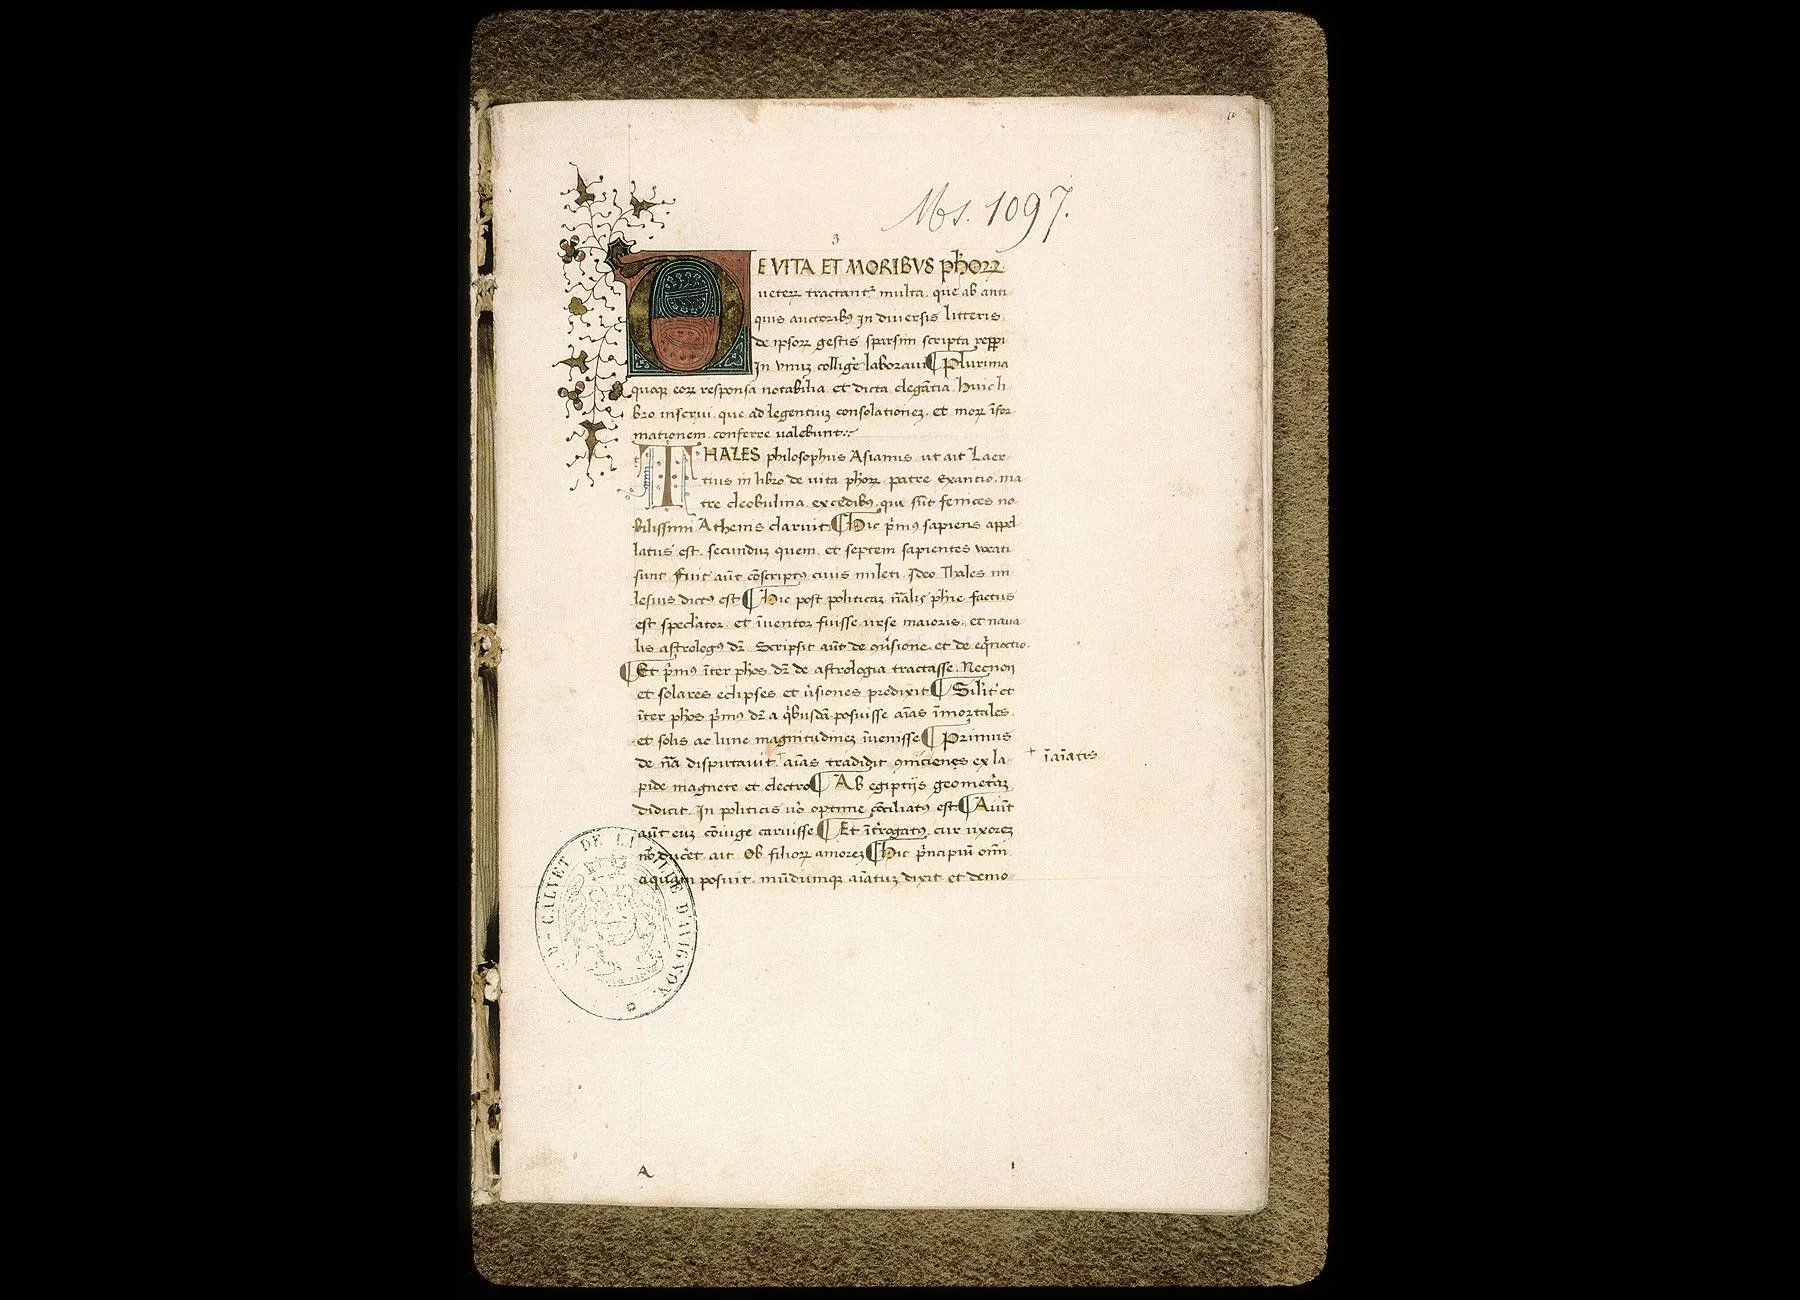 Ms. 1097.
3
DE VITA ET MORIBVS pħoꝝ
ueteꝝ tractantᷣ multa. que ab anti
quis auctoribꝰ In diuersis litteris
de ipsoꝝ gestis sparsim scripta repꝑi
In vnuȝ collig̃e laboraui ¶ Plurima
quoqꝫ eoꝝ responsa notabilia et dicta elegãtia huic li
bro inserui que ad legentiuȝ consolationeȝ. et moꝝ ĩfor
mationem conferre ualebunt:~
THALES philosophus Asianus ut ait Laer
tius in libro de vita pħoꝝ patre Exantio. ma
tre cleobulina excedibꝰ. qui sũt fenices no
bilissimi Athenis claruit ¶ Hic p̃mꝰ sapiens appel
latus est. secunduȝ quem et septem sapientes vocati
sunt Fuit aũt cõscriptꝰ ciuis mileti Ideo Thales mi
lesius dictꝰ est ¶ Hic post politicaȝ ñalis pħie factus
est speclator et ĩuentor fuisse urse maioris. et naua
lis astrologꝰ dȓ Scripsit aũt de ꝯũsione et de eq̃noctio.
¶ Et p̃mꝰ ĩter pħos dȓ de astrologia tractasse. Necnon
et solares eclipses et ũsiones predixit ¶ Silit̃ et
ĩter pħos p̃mꝰ dȓ a q̃busdã posuisse aĩas ĩmortales.
et solis ac lune magnitudineȝ ĩuenisse ¶ Primus
de ña disputauit + aĩas tradidit ꝯniciens ex la-
+ ĩaĩatis
pide magnete et electro ¶ Ab egiptijs geometriaȝ
didicit In politicis ũo optime cõciliatꝰ est ¶ Aiũt
aũt euȝ cõiuge caruisse ¶ Et ĩt̃rogatꝰ cur uxoreȝ
nõ ducet ait Ob filioꝝ amoreȝ ¶ Hic p̃ncipiũ oĩm
aquam posuit. mũdumqꝫ aĩatuȝ dixit et demo-
CALVET DE LA VILLE D'AVIGNON
A